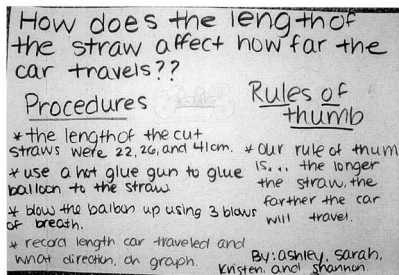 How does the length of
the straw affect how far the
car travels??
Procedures
* the length of the cut
straws were 22, 26, and 41cm.
* use a hot glue gun to glue
balloon to the straw.
* blow the balloon up using 3 blows
of breath.
* record length car traveled and
what direction, on graph.
Rules of
thumb
* Our rule of thum
is... the longer
the straw, the
farther the car
will travel.
By: ashley, sarah,
Kristen, and shannon.